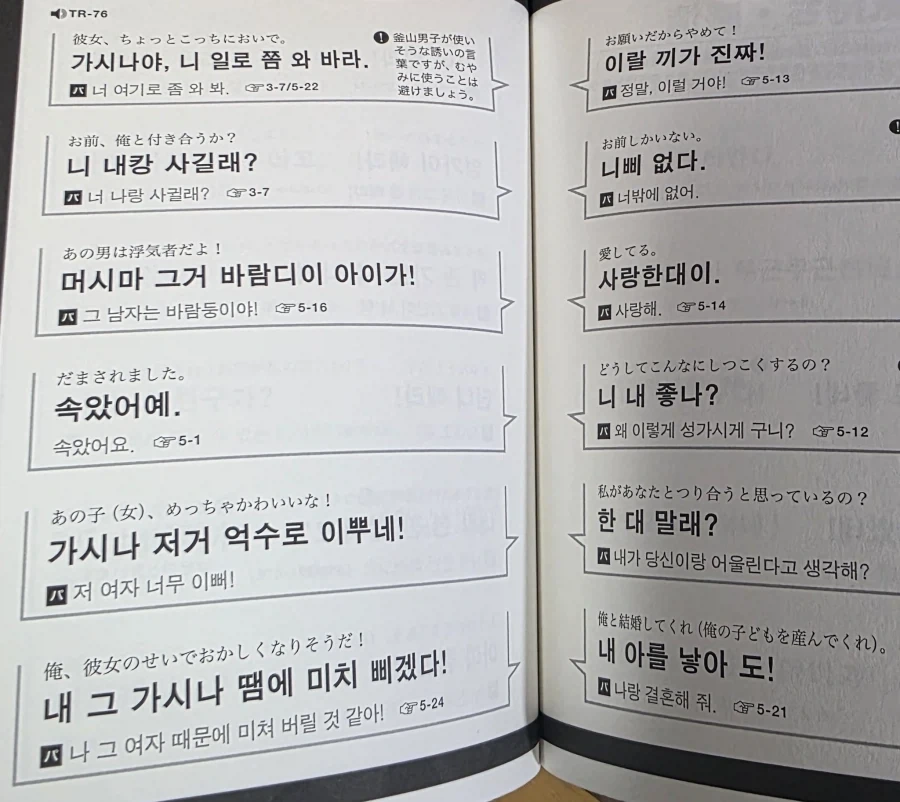 TR-76
彼女、ちょっとこっちにおいで。
가시나야, 니 일로 쫌 와 바라.
パ 너 여기로 좀 와 봐. ☞3-7/5-22
! 釜山男子が使い
そうな誘いの言
葉ですが、むや
みに使うことは
避けましょう。
お前、俺と付き合うか？
니 내캉 사길래?
パ 너 나랑 사귈래? ☞3-7
あの男は浮気者だよ！
머시마 그거 바람디이 아이가!
パ 그 남자는 바람둥이야! ☞5-16
だまされました。
속았어예.
속았어요. ☞5-1
あの子（女）、めっちゃかわいいな！
가시나 저거 억수로 이뿌네!
パ 저 여자 너무 이뻐!
俺、彼女のせいでおかしくなりそうだ！
내 그 가시나 땜에 미치 삐겠다!
パ 나 그 여자 때문에 미쳐 버릴 것 같아! ☞5-24
お願いだからやめて！
이랄 끼가 진짜!
パ 정말, 이럴 거야! ☞5-13
お前しかいない。
니삐 없다.
パ 너밖에 없어.
愛してる。
사랑한대이.
パ 사랑해. ☞5-14
どうしてこんなにしつこくするの？
니 내 좋나?
パ 왜 이렇게 성가시게 구니? ☞5-12
私があなたとつり合うと思っているの？
한 대 말래?
パ 내가 당신이랑 어울린다고 생각해?
俺と結婚してくれ（俺の子どもを産んでくれ）。
내 아를 낳아 도!
パ 나랑 결혼해 줘. ☞5-21